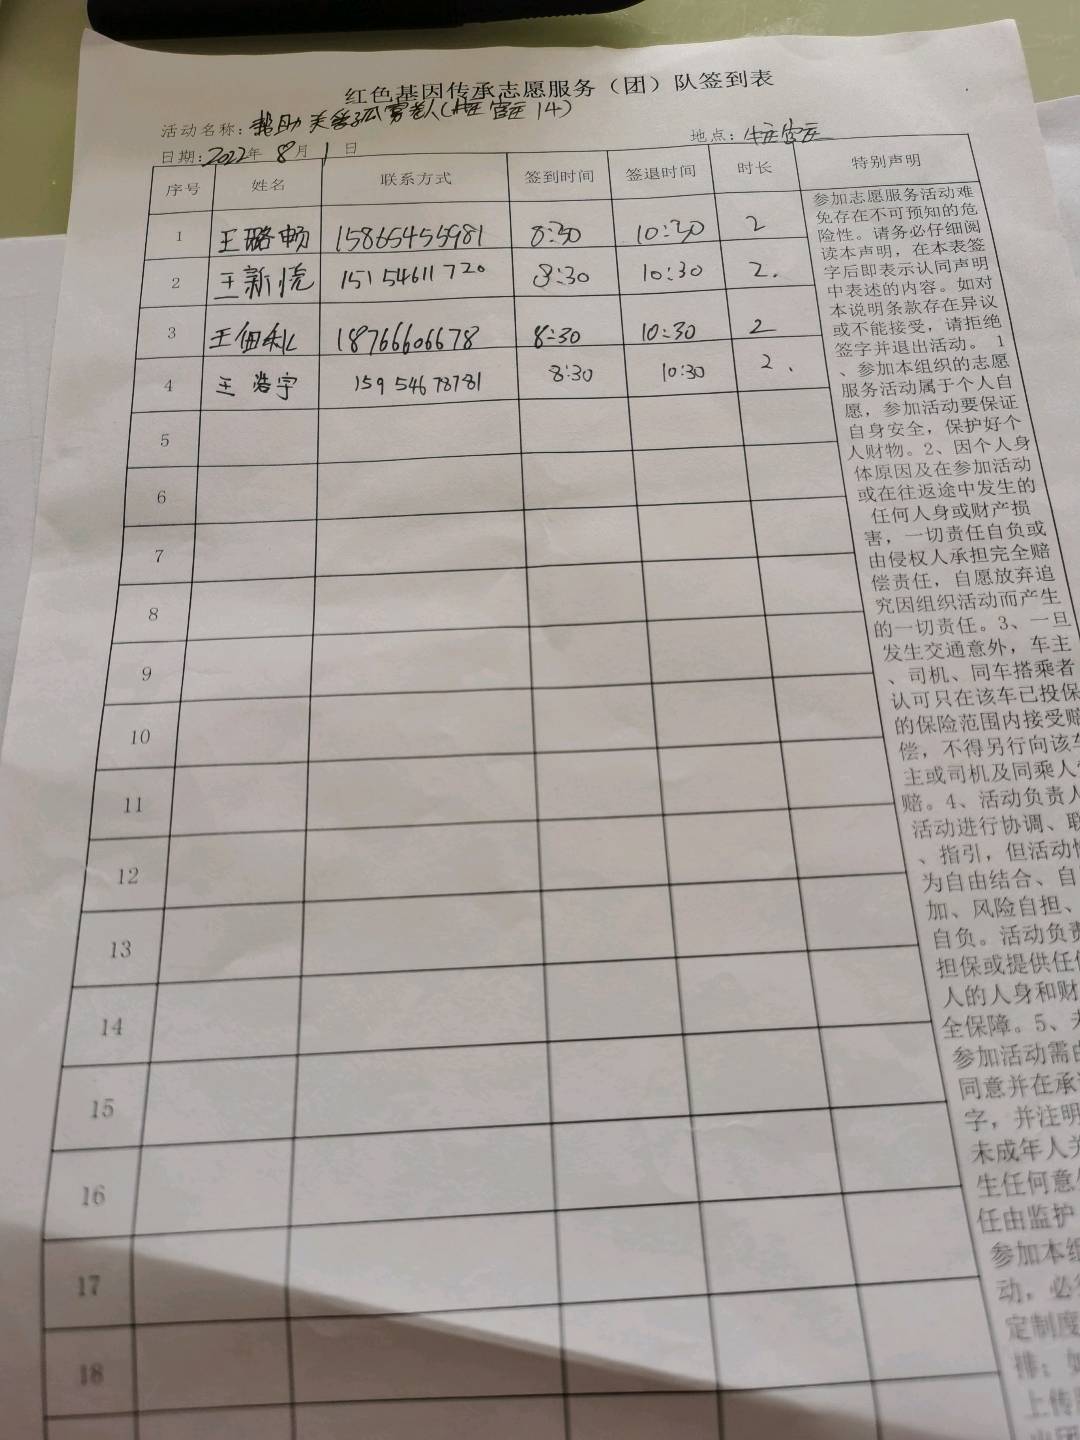 红色基因传承志愿服务（团）队签到表
活动名称：帮助关爱孤寡老人（牛庄官庄 14）
日期：2022年 8月 1 日
地点：牛庄官庄
序号 姓名 联系方式 签到时间 签退时间 时长 特别声明
1 王璐畅 15865455981 8:30 10:30 2
2 王新 15154611720 8:30 10:30 2.
3 王佃 18766606678 8:30 10:30 2
4 王浩宇 15954678781 8:30 10:30 2.
5
6
7
8
9
10
11
12
13
14
15
16
17
18
参加志愿服务活动难
免存在不可预知的危
险性。请务必仔细阅
读本声明，在本表签
字后即表示认同声明
中表述的内容。如对
本说明条款存在异议
或不能接受，请拒绝
签字并退出活动。 1
、参加本组织的志愿
服务活动属于个人自
愿，参加活动要保证
自身安全，保护好个
人财物。2、因个人身
体原因及在参加活动
或在往返途中发生的
任何人身或财产损
害，一切责任自负或
由侵权人承担完全赔
偿责任，自愿放弃追
究因组织活动而产生
的一切责任。3、一旦
发生交通意外，车主
、司机、同车搭乘者
认可只在该车已投保
的保险范围内接受赔
偿，不得另行向该车
主或司机及同乘人
赔。4、活动负责人
活动进行协调、联
、指引，但活动
为自由结合、自
加、风险自担、
自负。活动负责
担保或提供任
人的人身和财
全保障。5、未
参加活动需由
同意并在承
字，并注明
未成年人
生任何意
任由监护
参加本组
动，必
定制度
排；如
上传